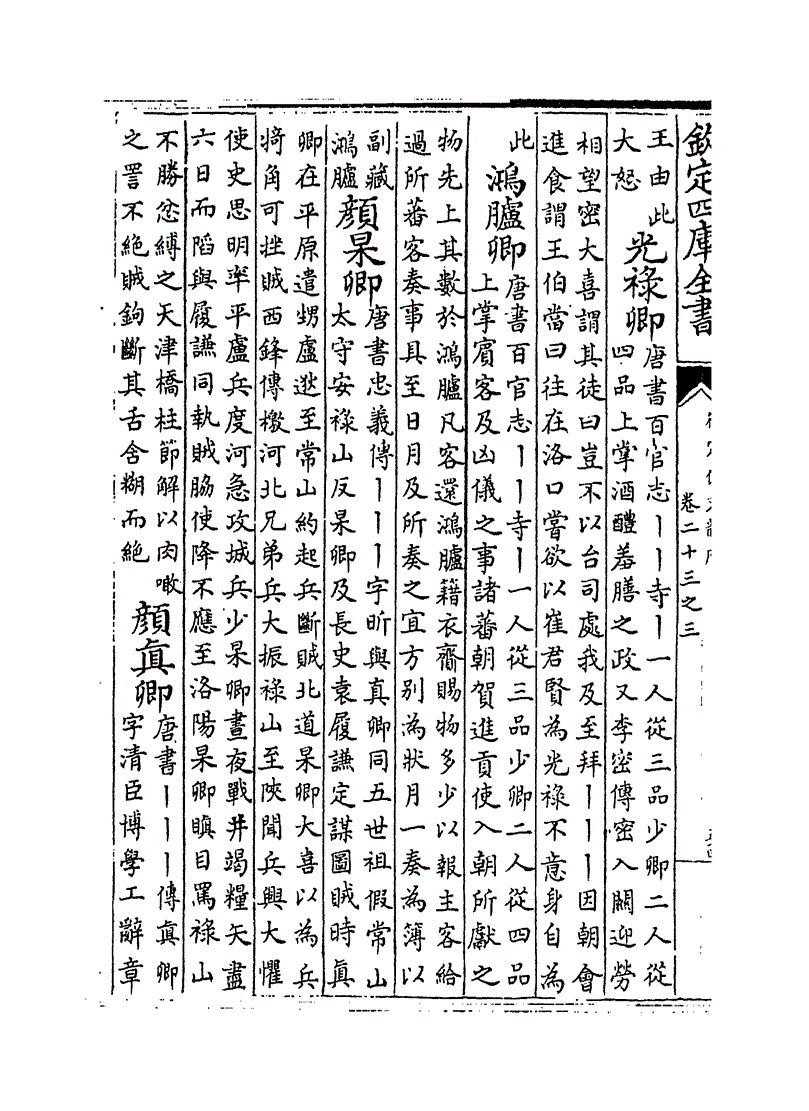 欽定四庫全書
卷二十三之三
王由此
大怒
光祿卿
唐書百官志丨丨寺丨一人從三品少卿二人從
四品上掌酒醴羞膳之政又李密傳密入關迎勞
相望密大喜謂其徒曰豈不以台司處我及至拜丨丨丨因朝會
進食謂王伯當曰往在洛口嘗欲以崔君賢為光祿不意身自為
此
鴻臚卿
唐書百官志丨丨寺丨一人從三品少卿二人從四品
上掌賓客及凶儀之事諸蕃朝賀進貢使入朝所獻之
物先上其數於鴻臚凡客還鴻臚籍衣齎賜物多少以報主客給
過所蕃客奏事具至日月及所奏之宜方别為狀月一奏為簿以
副藏
鴻臚
顔杲卿
唐書忠義傳丨丨丨字昕與真卿同五世祖假常山
太守安祿山反杲卿及長史袁履謙定謀圖賊時真
卿在平原遣甥盧逖至常山約起兵斷賊北道杲卿大喜以為兵
犄角可挫賊西鋒傳檄河北兄弟兵大振祿山至陝聞兵興大懼
使史思明率平盧兵度河急攻城兵少杲卿晝夜戰井竭糧矢盡
六日而陷與履謙同執賊脇使降不應至洛陽杲卿瞋目罵祿山
不勝忿縛之天津橋柱節解以肉噉
之詈不絶賊鉤斷其舌含糊而絶
顔真卿
唐書丨丨丨傳真卿
字清臣博學工辭章